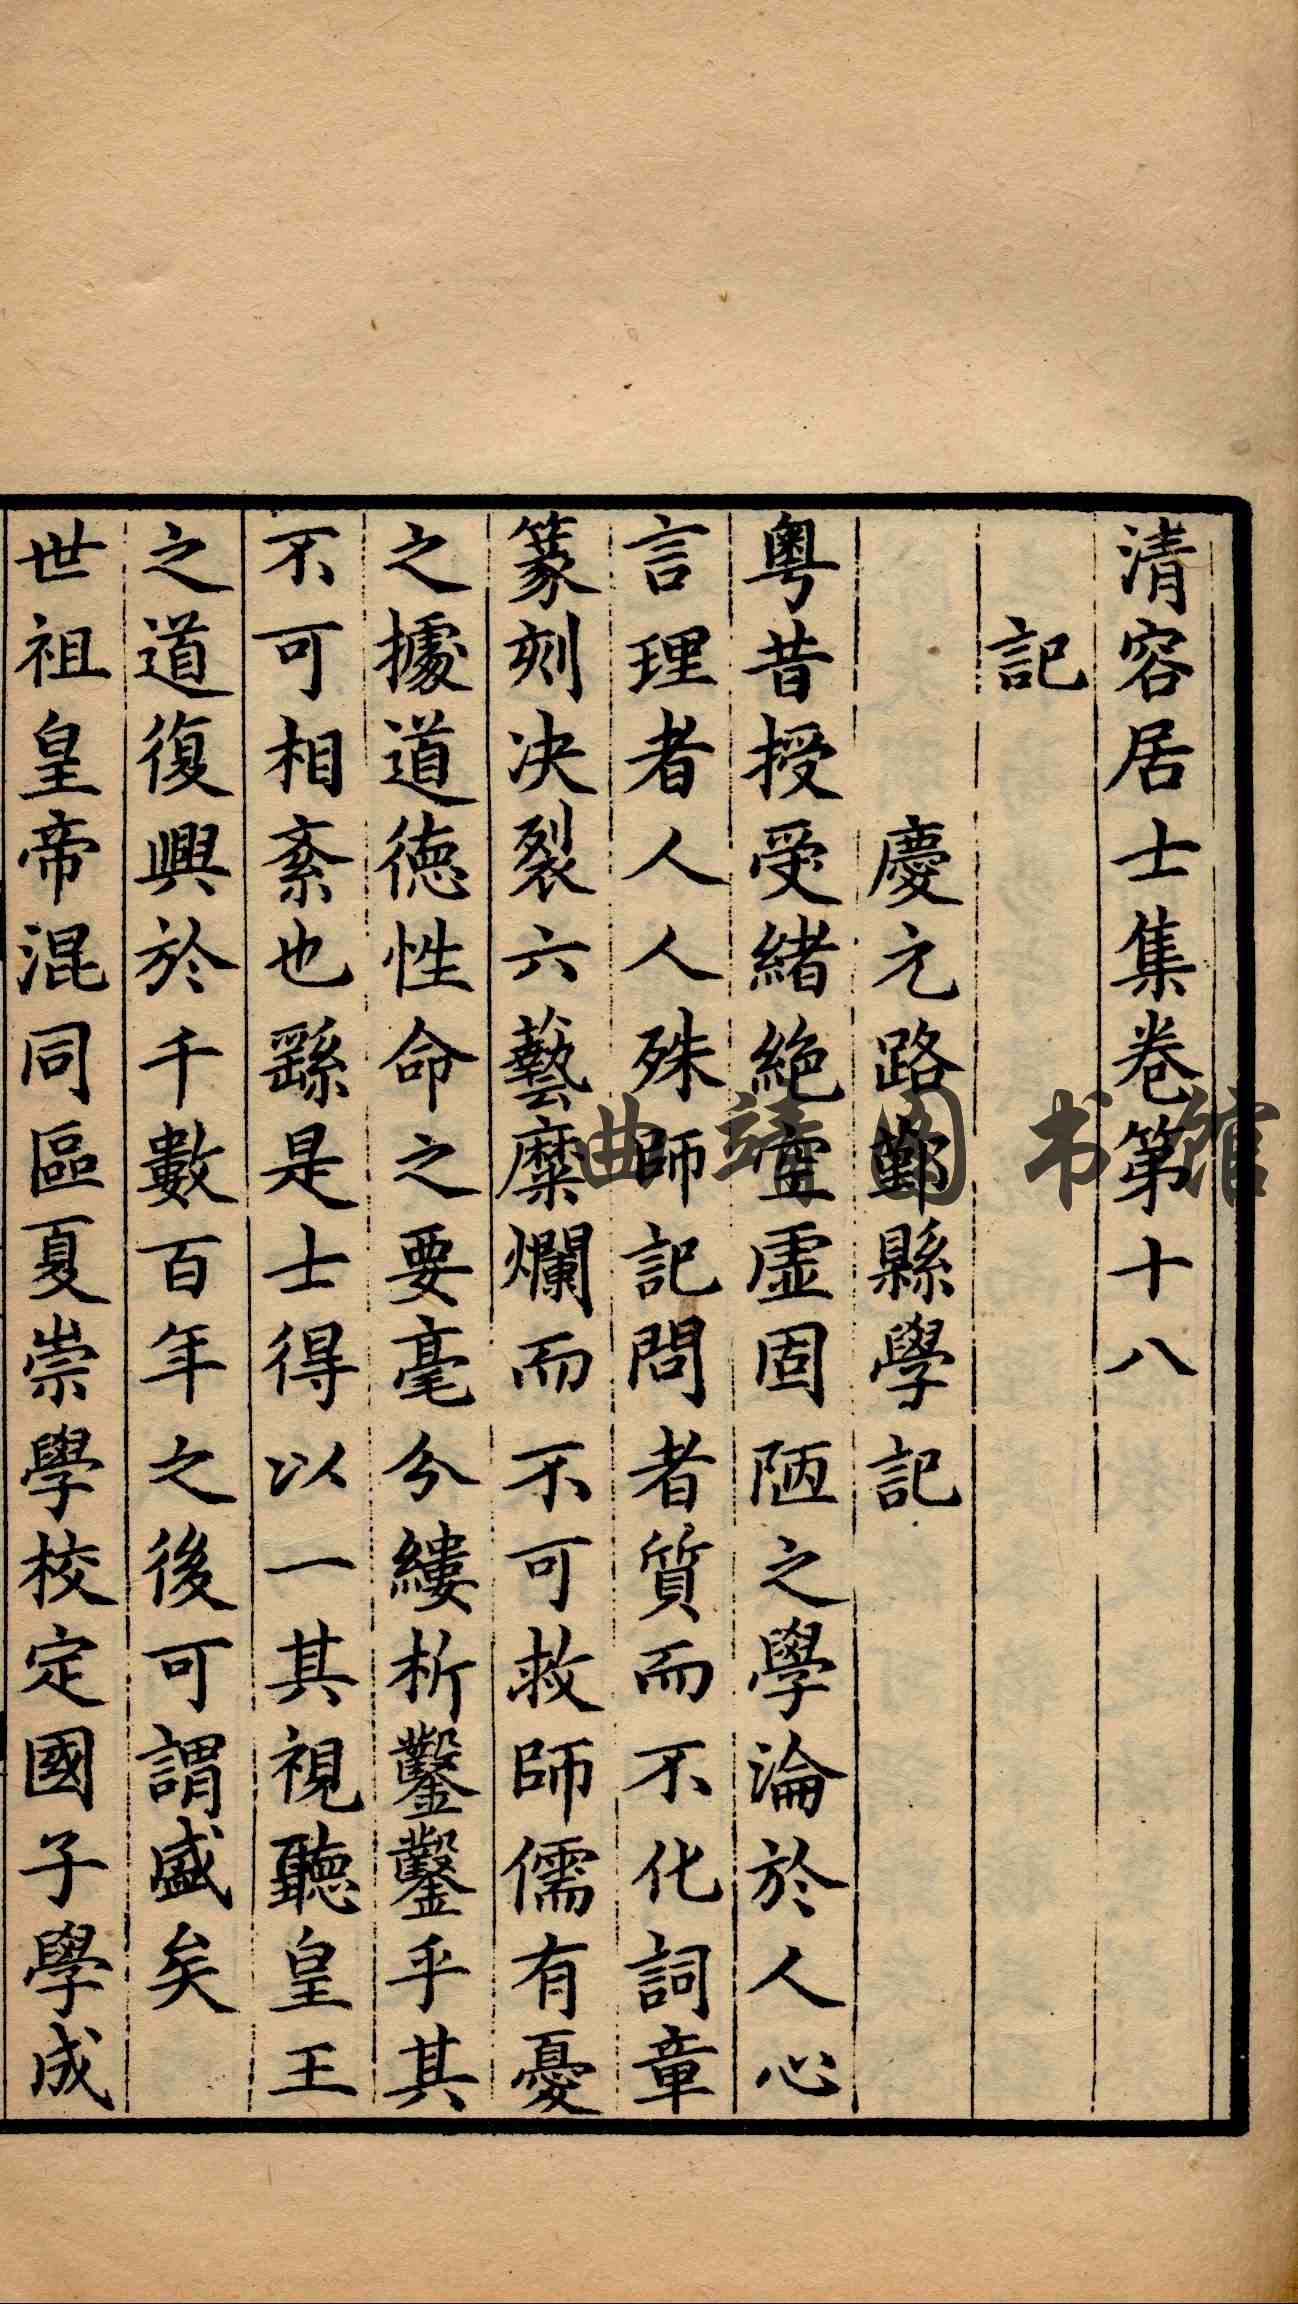 清容居士集卷第十八
記
慶元路鄞縣學記
粵昔授受緒絶空虛固陋之學淪於人心
言理者人人殊師記問者質而不化詞章
篆刻决裂六藝糜爛而不可救師儒有憂
之據道德性命之要毫分縷析鑿鑿乎其
不可相紊也繇是士得以一其視聽皇王
之道復興於千數百年之後可謂盛矣
世祖皇帝混同區夏崇學校定國子學成
曲靖图书馆